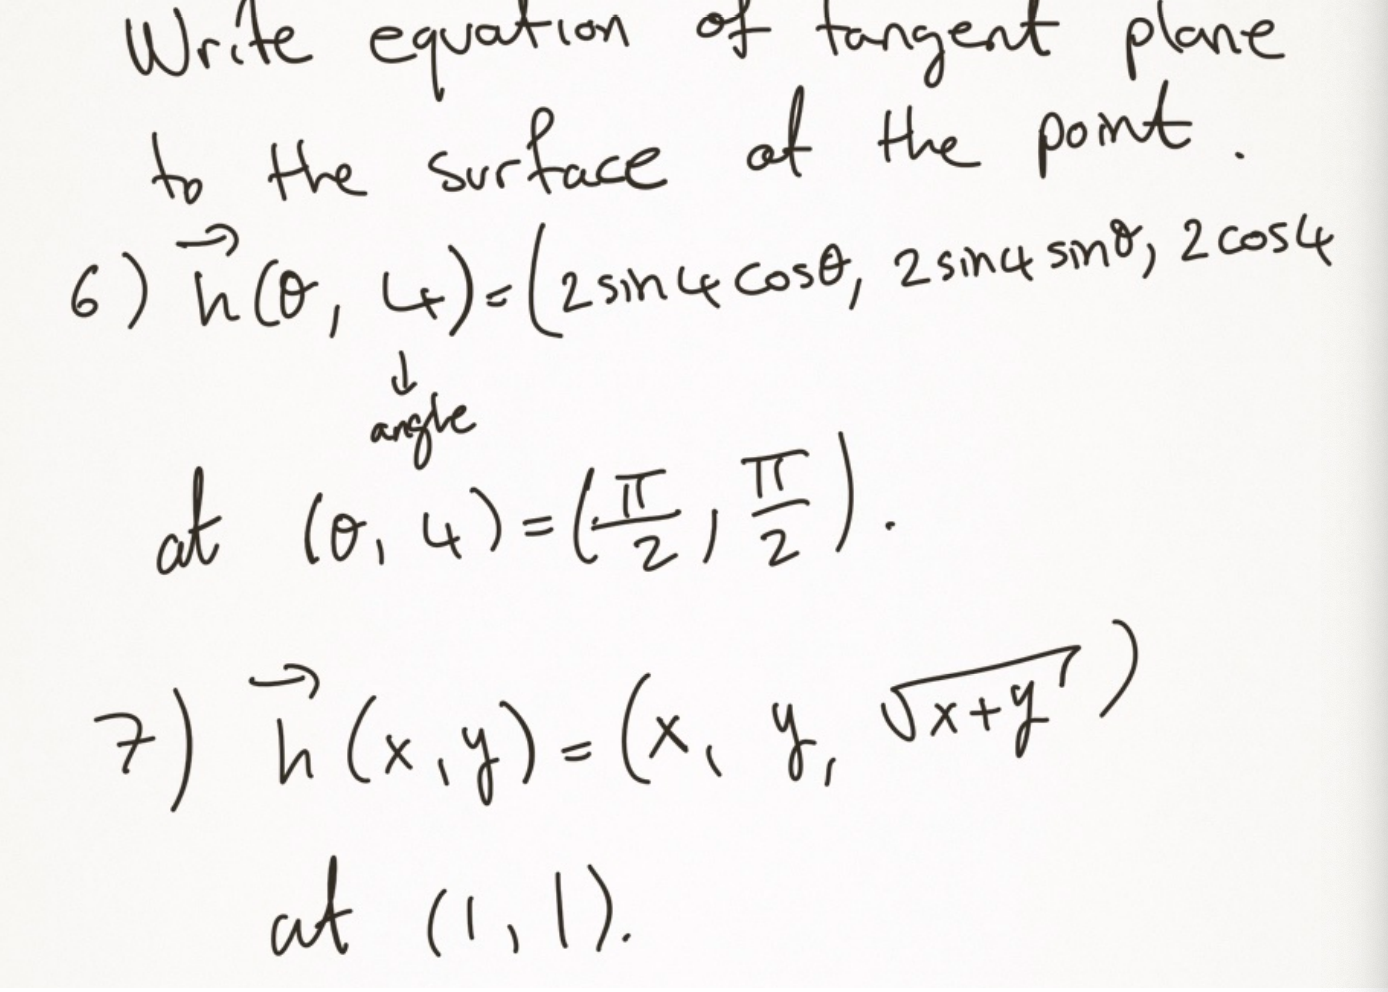 Write equation of tangent plane
to the surface at the point.
6) h⃗(θ, 4)=(2sin4cosθ, 2sin4sinθ, 2cos4
↓
angle
at (θ, 4)=(π/2, π/2).
7) h⃗(x,y)=(x, y, √x+y)
at (1,1).